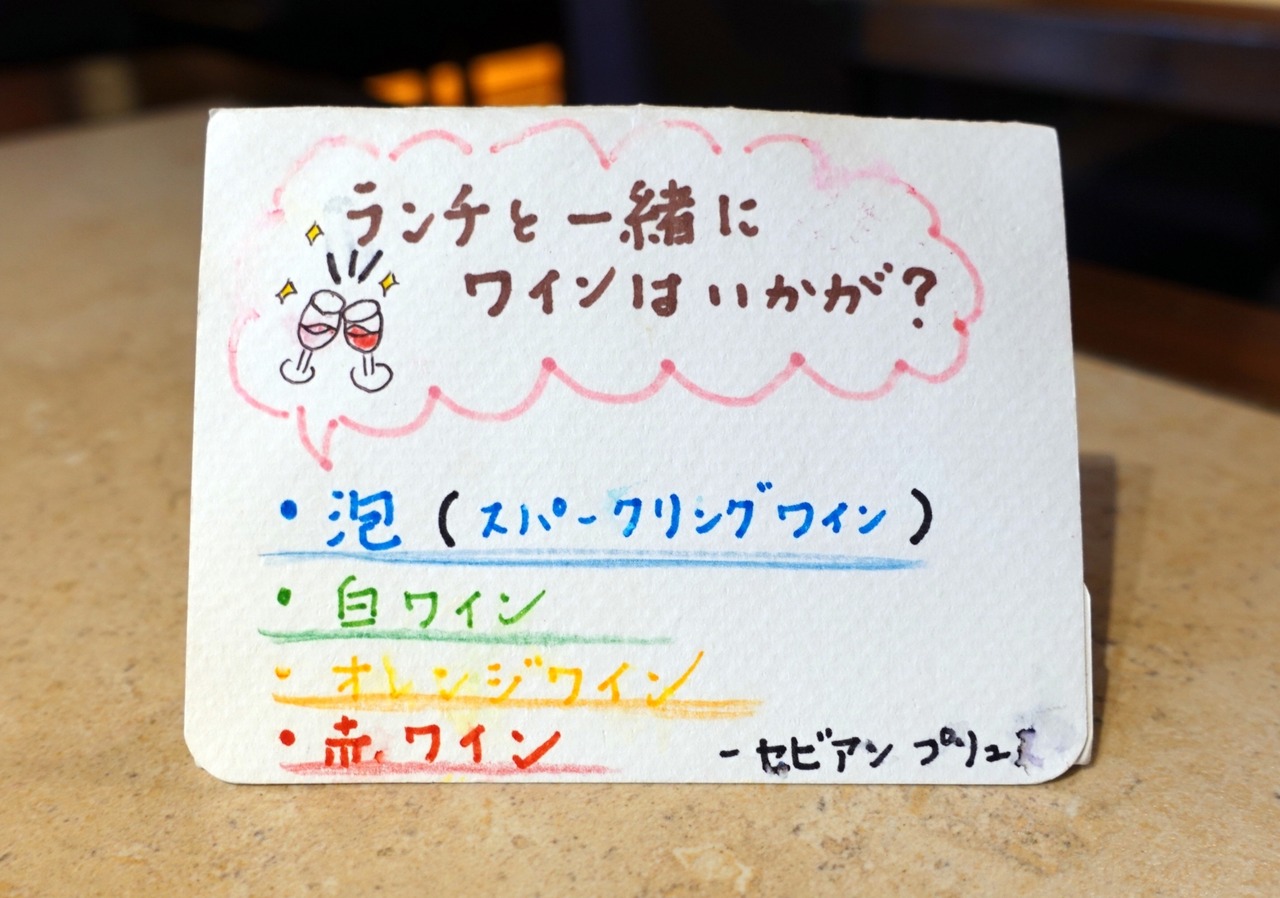 ランチと一緒に
ワインはいかが?
・泡(スパークリングワイン)
・白ワイン
・オレンジワイン
・赤ワイン
-セビアン